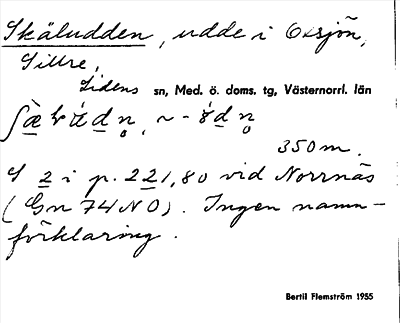 Skäludden, udde i Oxsjön,
Sillre,
Lidens sn, Med. ö. doms. tg, Västernorrl. län
350 m.
S 2 i p. 221,80 vid Norrnäs
(Gn 74 NO). Ingen namn-
förklaring.
Bertil Flemström 1955